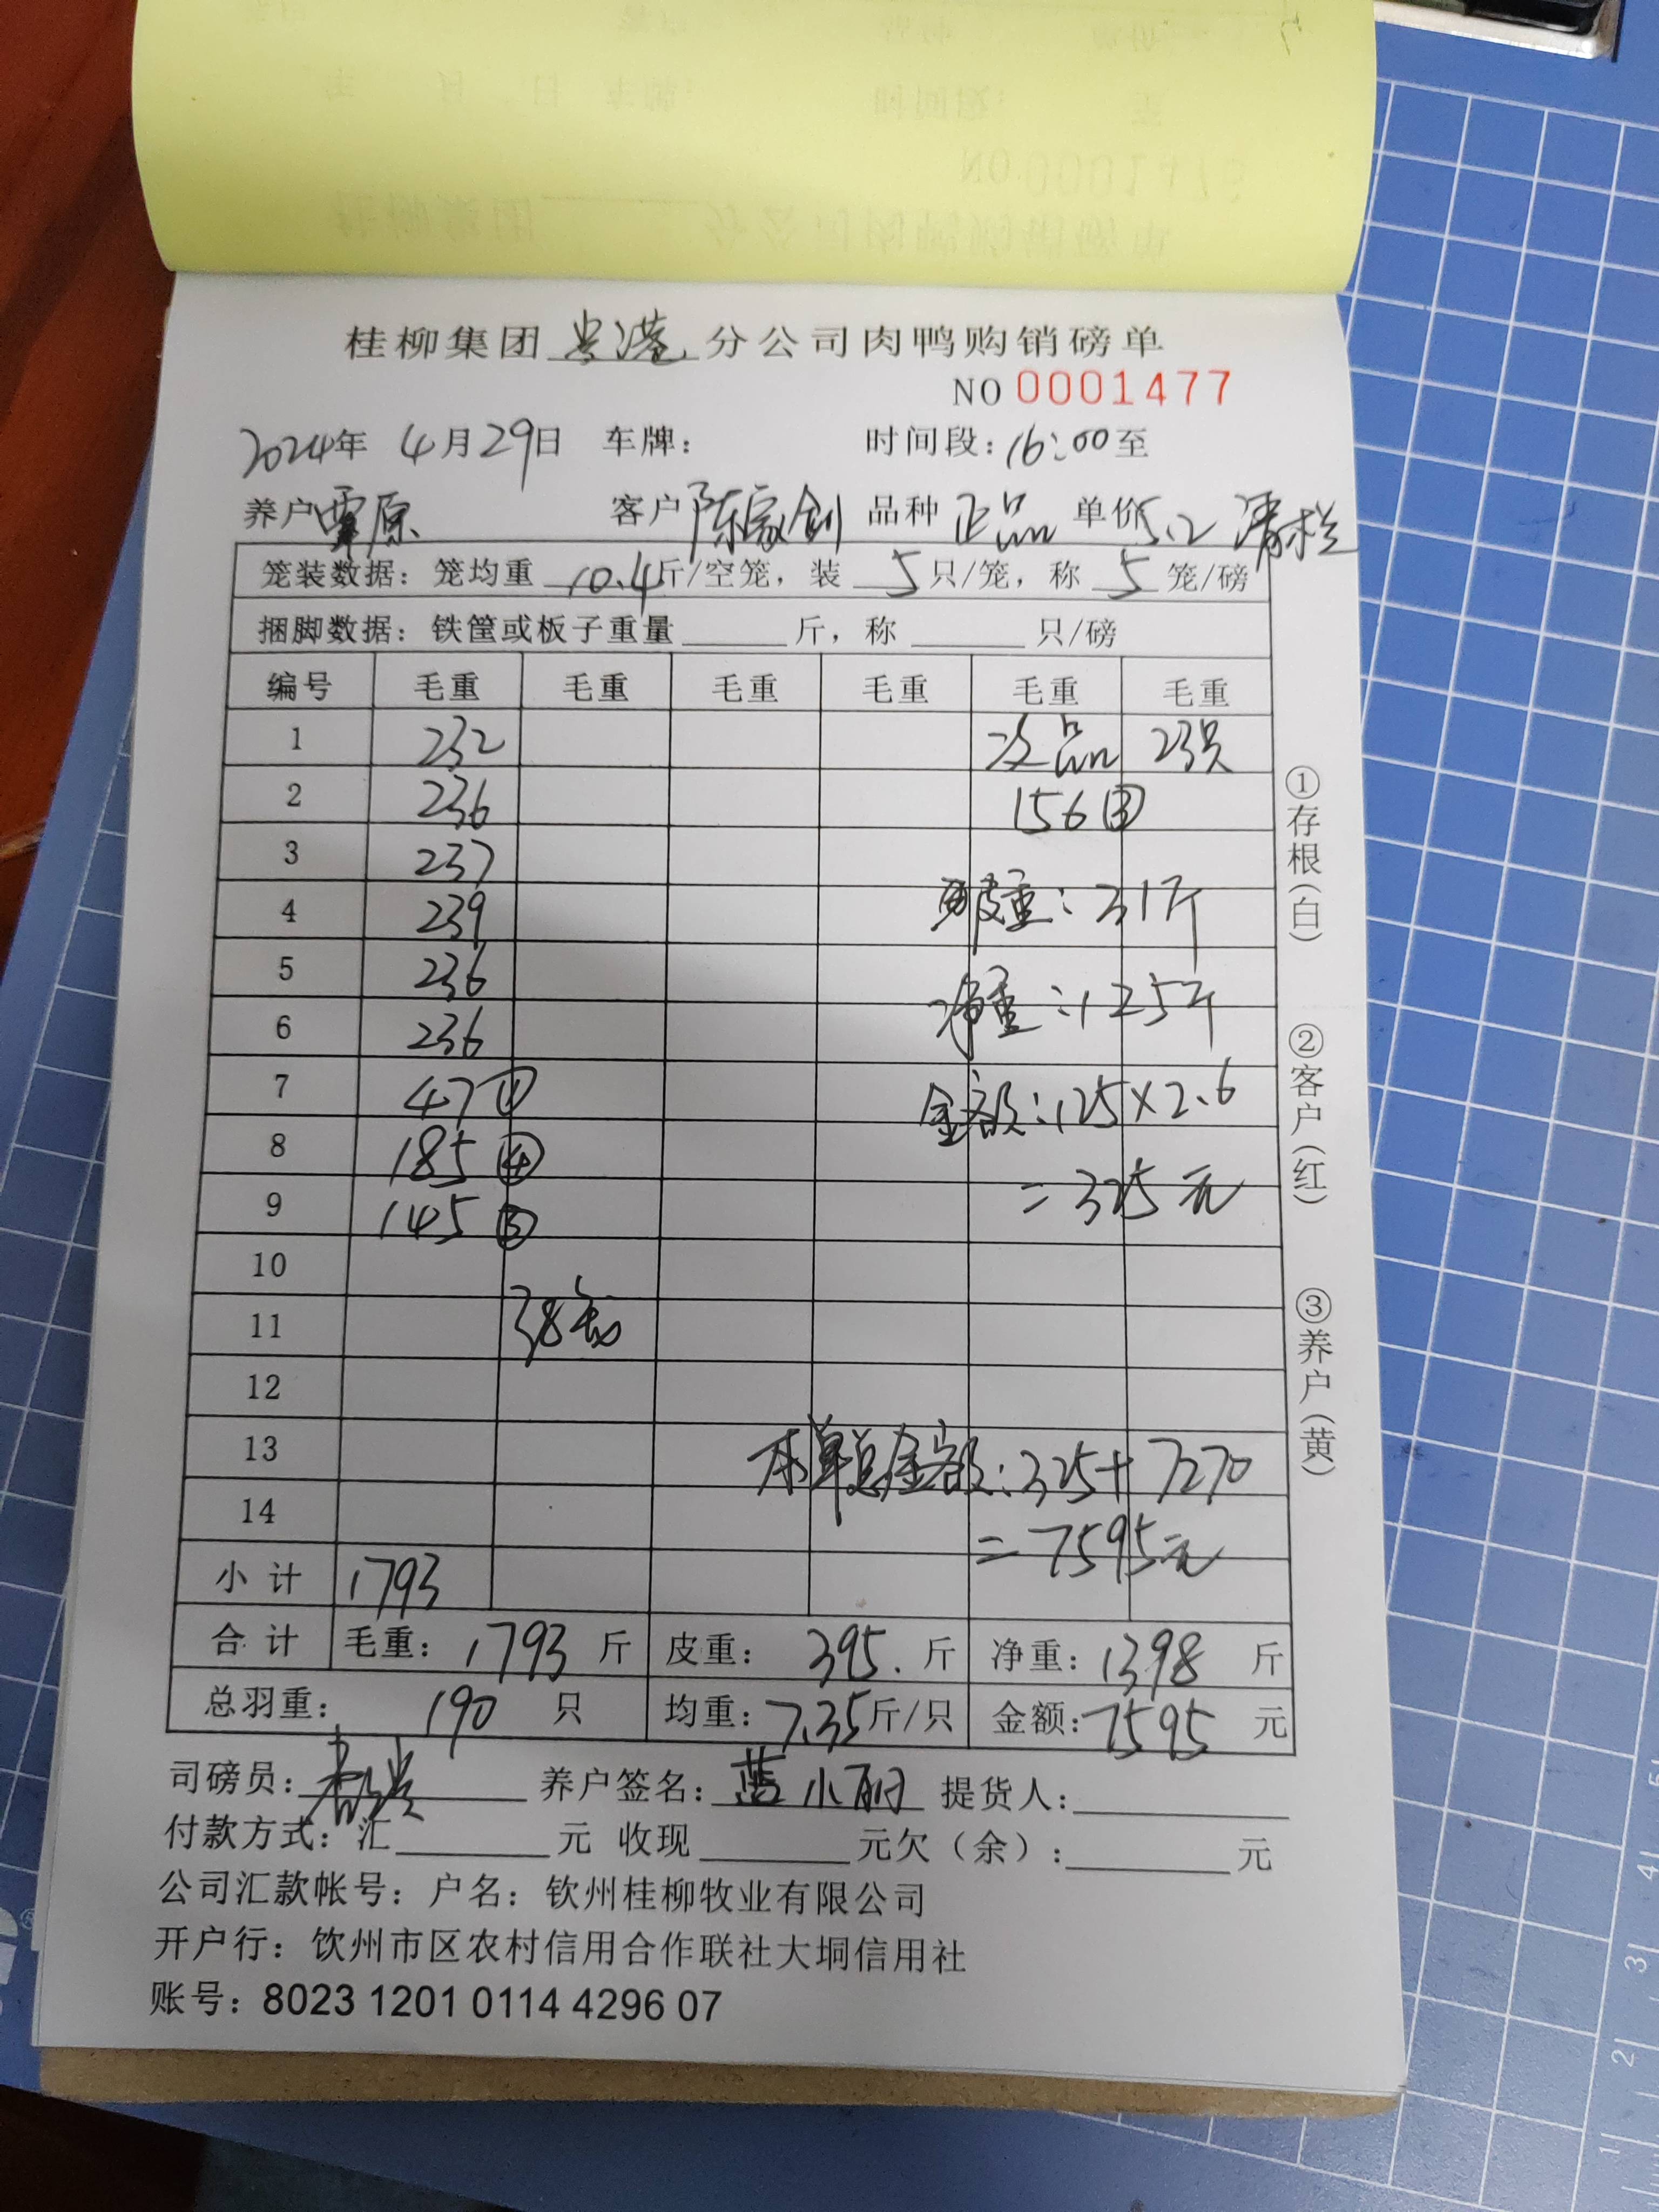 桂柳集团 贵港 分公司肉鸭购销磅单
NO 0001477
2024年 4月29日 车牌: 时间段: 16:00至
养户 覃原 客户 陈家剑 品种 正品 单价 5.2 清栏
笼装数据: 笼均重 10.4斤/空笼, 装 5 只/笼, 称 5 笼/磅
捆脚数据: 铁筐或板子重量 斤, 称 只/磅
编号 毛重 毛重 毛重 毛重 毛重 毛重
1 232 次品 23只
2 236 156 ③
3 237
4 239 皮重: 31斤
5 236
6 236 净重: 125斤
7 47 ① 金额: 125×2.6
8 185 ④
9 145 ③ =325元
10
11 38笼
12
13 本单总金额: 325+7270
14 =7595元
小计 1793
合计 毛重: 1793 斤 皮重: 395. 斤 净重: 1398 斤
总羽重: 190 只 均重: 7.35斤/只 金额: 7595 元
司磅员: 养户签名: 蓝小丽 提货人:
付款方式: 汇 元 收现 元欠(余): 元
公司汇款帐号: 户名: 钦州桂柳牧业有限公司
开户行: 饮州市区农村信用合作联社大垌信用社
账号: 8023 1201 0114 4296 07
①存根(白)
②客户(红)
③养户(黄)